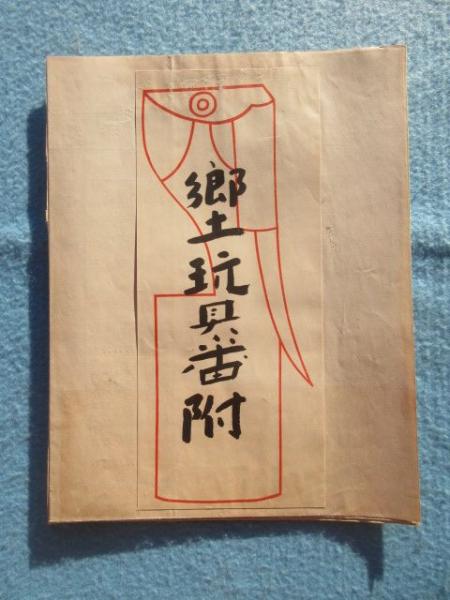 鄉土玩具番附